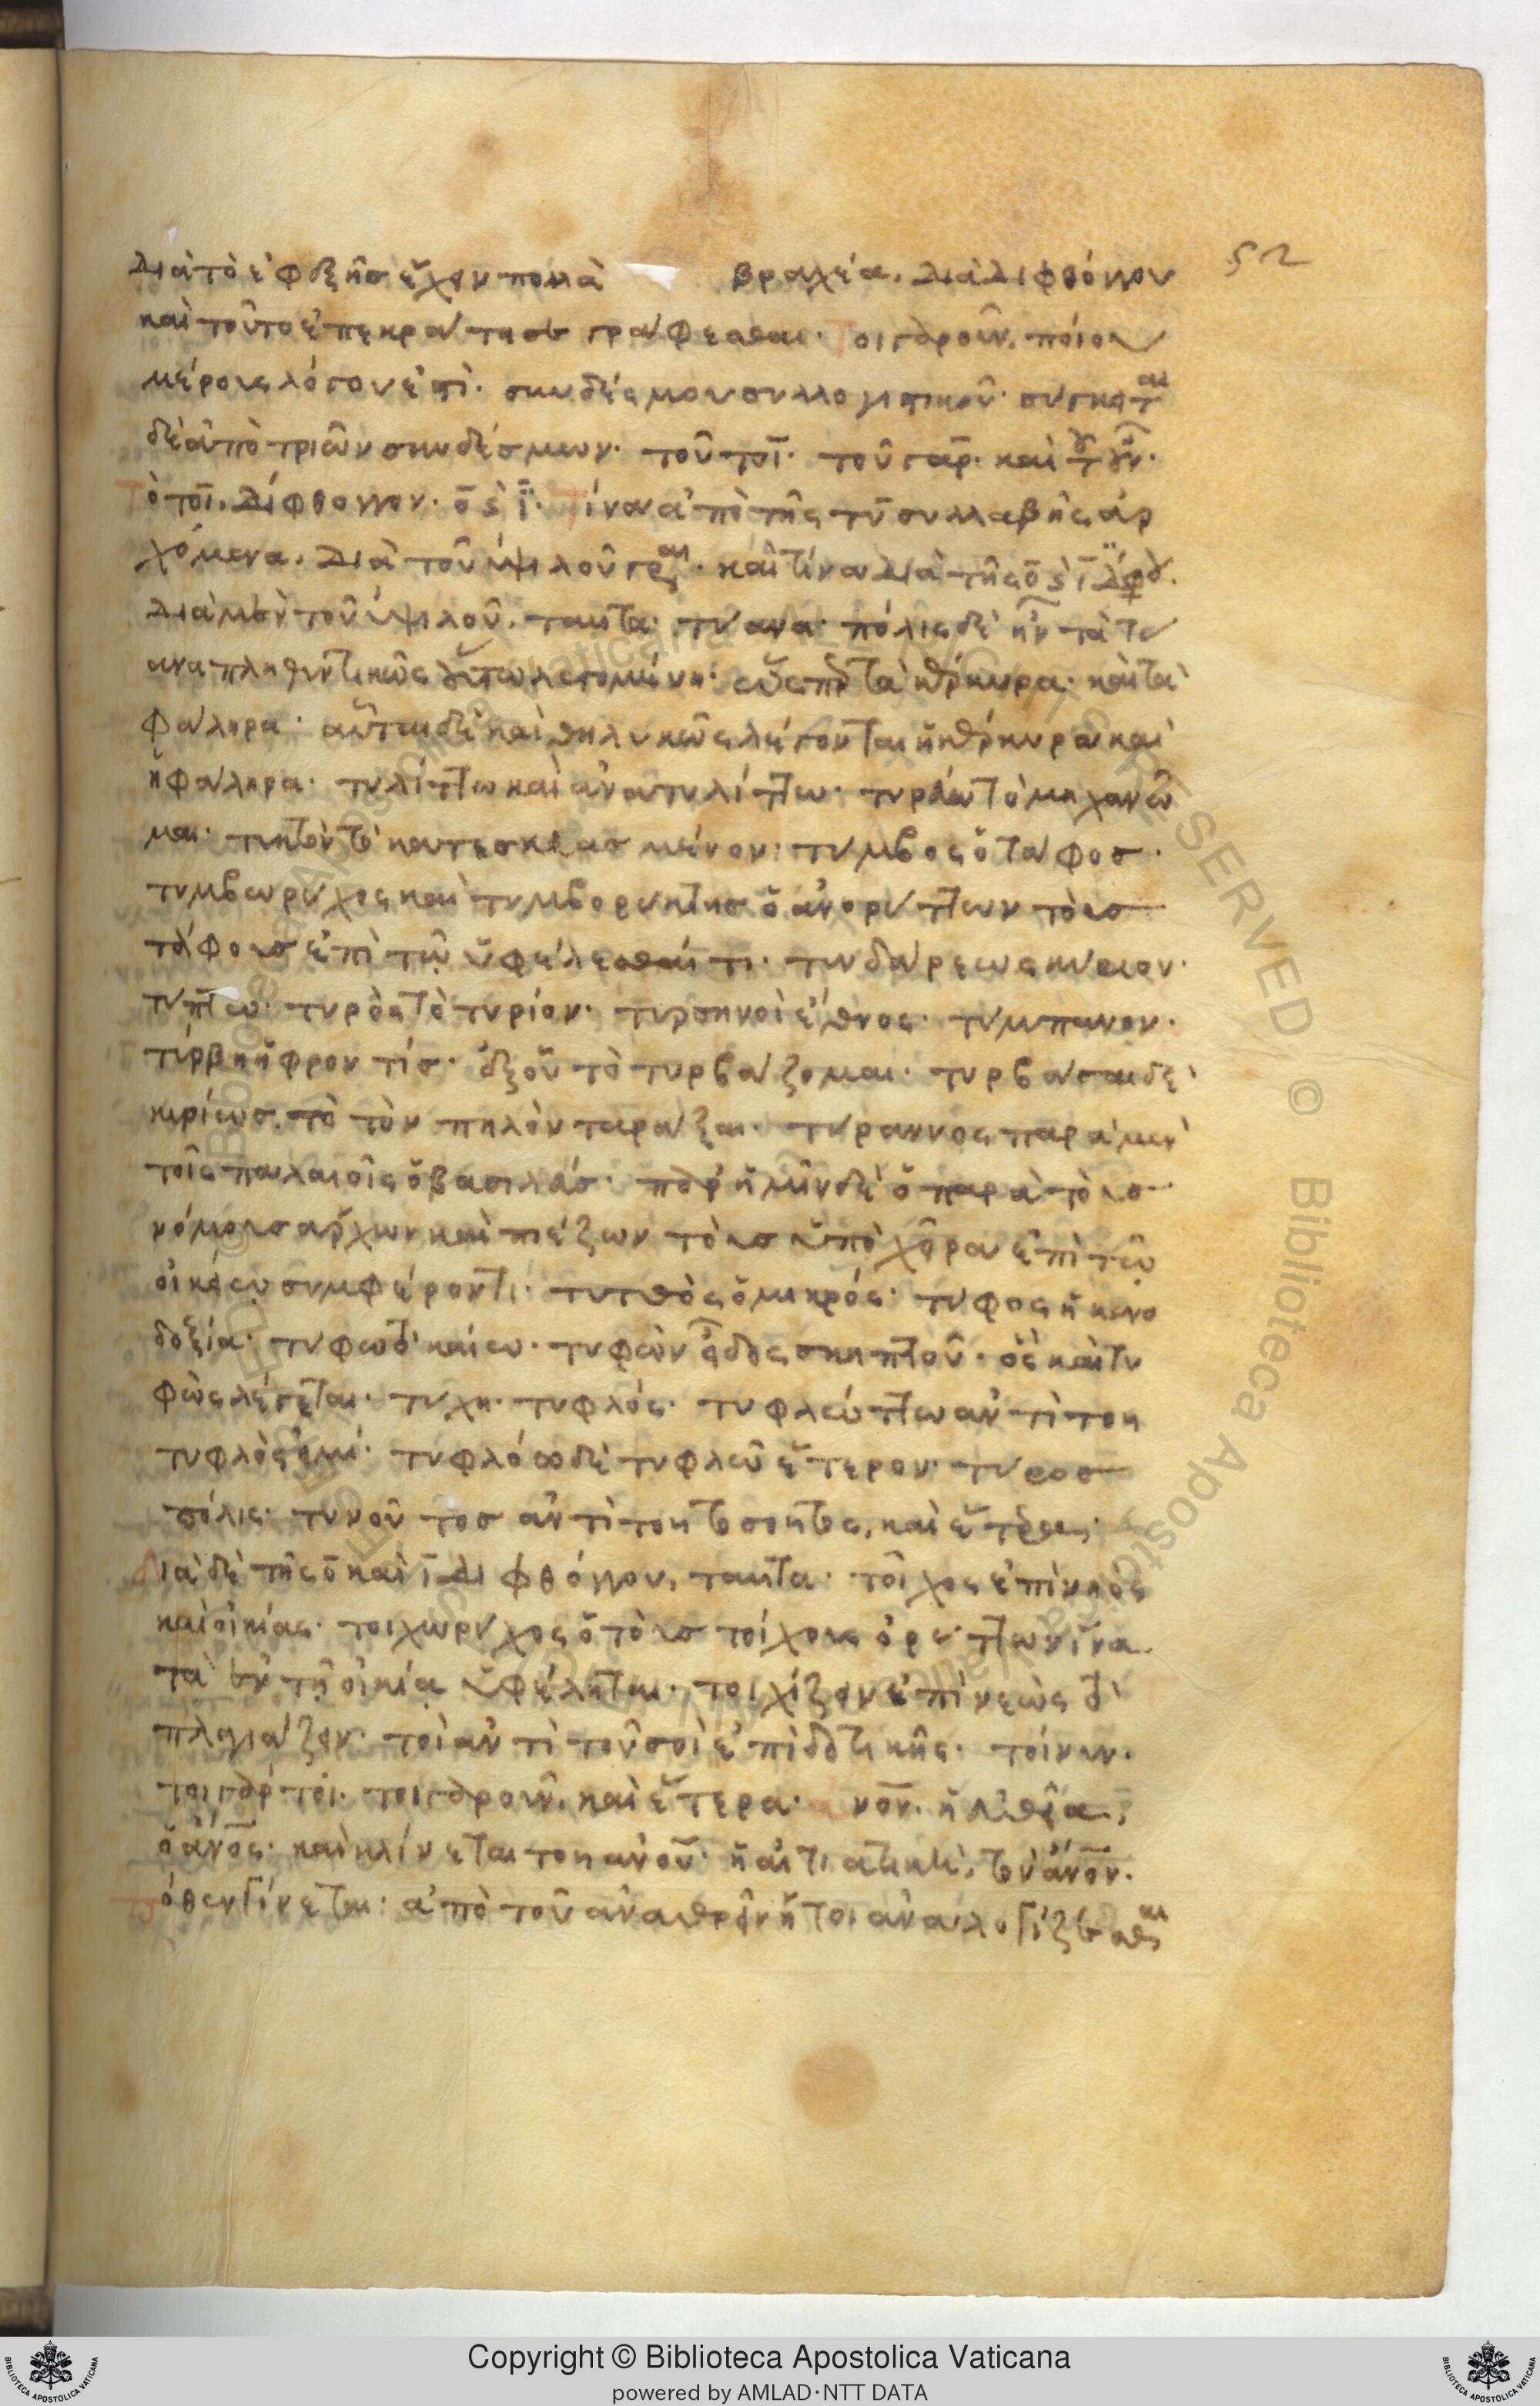 διὰ τὸ ἐφεξῆς ἔχειν πολλὰ βραχέα. διὰ διφθόγγου
καὶ τοῦτο ἐπεκράτησε γράφεσθαι· Τοιγαροῦν, ποίου
μέρους λόγου ἐστὶ· συνδέσμου συλλογιστικοῦ· σύγκειται
δὲ ἀπὸ τριῶν συνδέσμων· τοῦ τοῖ· τοῦ γάρ· καὶ τοῦ οὖν·
Τὸ τοῖ, δίφθογγον· ο̅ ϗ ι̅· Τίνα ἀπὸ τῆς τυ̅ συλλαβῆς ἀρ
χόμενα, διὰ τοῦ ψιλοῦ γράφεται· καὶ τίνα διὰ τῆς ο̅ ϗ ι̅ διφθόγγου.
διὰ μὲν τοῦ ψιλοῦ, ταῦτα· τύανα· πόλις δὲ ἦν τὰ τύ
ανα πληθυντικῶς οὕτω λεγομένη· ὥσπερ τὰ κέρκυρα· καὶ τὰ
φάληρα· αὗται δὲ καὶ θηλυκῶς λέγονται ἡ κέρκυρα καὶ
ἡ φάληρα· τυλίττω καὶ ἀνατυλίττω· τυρεύω τὸ μηχανῶ
μαι· τυκτὸν τὸ κατεσκευασμένον· τύμβος ὁ τάφος·
τυμβωρύχος καὶ τυμβορύκτης ὁ ἀνορύττων τοὺς
τάφους ἐπὶ τῷ ὑφελέσθαι τι· τυνδάρεως κύριον·
τύπτω· τυρὸς τὸ τυρίον· τυρσηνοὶ ἔθνος· τύμπανον·
τύρβη ἡ φροντίς· ἐξ οὗ τὸ τυρβάζομαι· τυρβάσαι δὲ
κυρίως, τὸ τὸν πηλὸν ταράξαι· τύραννος παρὰ μὲν
τοῖς παλαιοῖς ὁ βασιλεύς· παρ' ἡμῖν δὲ ὁ παρὰ τοὺς
νόμους ἄρχων καὶ πιέζων τοὺς ὑπὸ χεῖρα ἐπὶ τῷ
οἰκείῳ συμφέροντι· τυτθὸς ὁ μικρός· τύφος ἡ κενο
δοξία· τύφω τὸ καίω· τυφὼν εἶδος σκηπτοῦ· ὃς καὶ τυ
φὼς λέγεται· τύχη· τυφλός· τυφλώττω ἀντὶ τοῦ
τυφλός εἰμί· τυφλόω δὲ τυφλῶ ἕτερον· τύρος
πόλις· τυνοῦτος ἀντὶ τοῦ τοσοῦτος, καὶ ἕτερα·
διὰ δὲ τῆς ο̅ καὶ ι̅ διφθόγγου, ταῦτα· τοῖχος ἐπὶ νηὸς
καὶ οἰκίας· τοιχωρύχος ὁ τοὺς τοίχους ὀρύττων ἵνα
τὰ ἐν τῇ οἰκίᾳ ὑφέληται· τοιχίζειν ἐπὶ νεὼς τὸ
πλαγιάζειν· τοὶ ἀντὶ τοῦ σοὶ ἐπὶ δοτικῆς· τοίνυν·
τοιγάρτοι· τοιγαροῦν, καὶ ἕτερα· ἀ νο̅ν. ἡ εὐθεῖα,
ὁ ἄνο̅ς· καὶ κλίνεται τοῦ ἀνου̅· ἡ αἰτιατικὴ, τὸν ἄνο̅ν·
πόθεν γίνεται· ἀπὸ τοῦ ἀναθρεῖν ἤτοι ἀναλογίζεσθαι